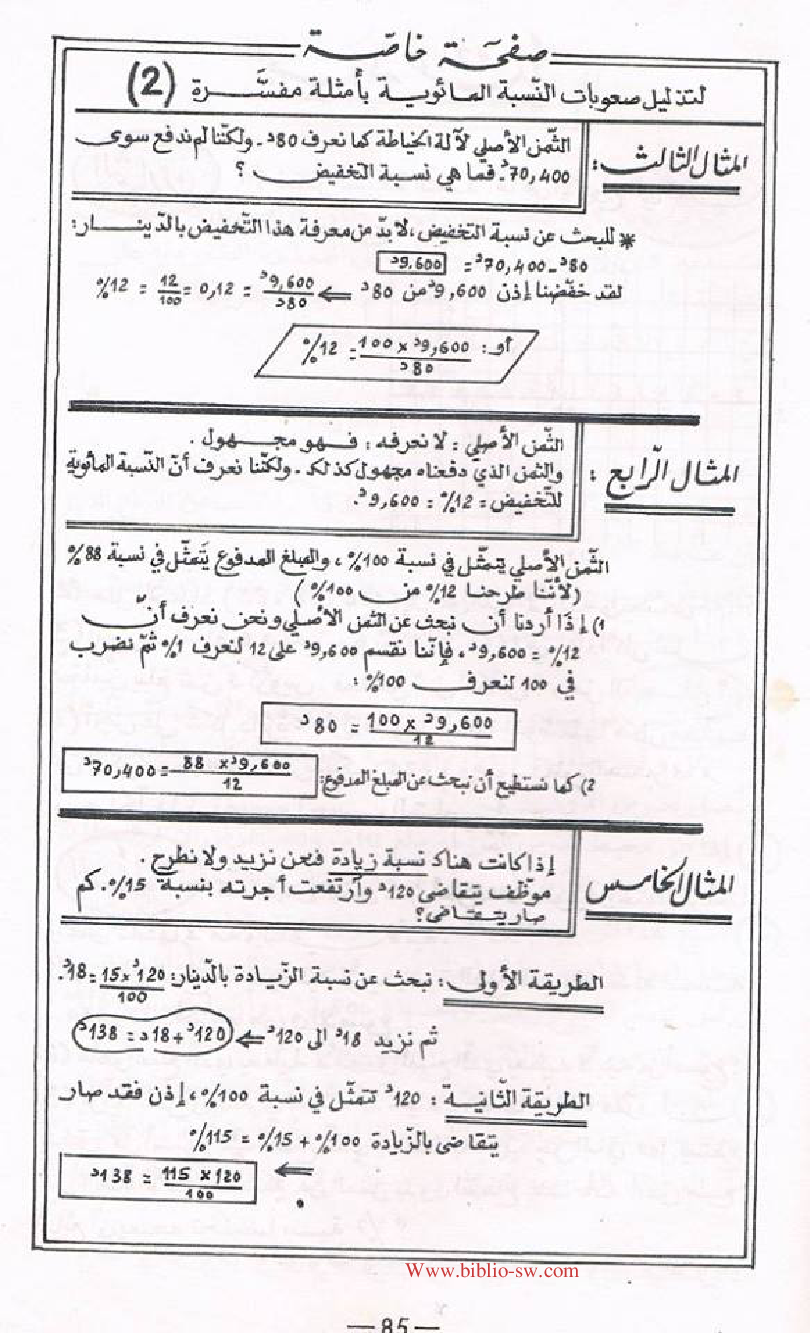 صفحة خاصّة
لتذليل صعوبات النّسبة المائوية بأمثلة مفسَّرة (2)
المثال الثالث:
الثّمن الأصلي لآلة الخياطة كما نعرف 80د. ولكنّنا لم ندفع سوى
70,400د. فما هي نسبة التخفيض؟
* للبحث عن نسبة التخفيض، لا بدّ من معرفة هذا التّخفيض بالدّينار:
80د - 70,400د = 9,600د
لقد خفّضنا إذن 9,600د من 80د ⇐ 9,600د / 80د = 0,12 = 12/100 = 12%
أو: 9,600د × 100 / 80د = 12%
المثال الرّابع:
الثّمن الأصلي: لا نعرفه: فهو مجهول.
والثمن الذي دفعناه مجهول كذلك. ولكنّنا نعرف أنّ النّسبة المائويّة
للتّخفيض: 12% = 9,600د.
الثّمن الأصلي يتمثّل في نسبة 100%، والمبلغ المدفوع يَتمثّل في نسبة 88%
(لأنّنا طرحنا 12% من 100%)
1) إذا أردنا أن نبحث عن الثمن الأصلي ونحن نعرف أن
12% = 9,600د، فإنّنا نقسم 9,600د على 12 لنعرف 1% ثمّ نضرب
في 100 لنعرف 100%:
9,600د × 100 / 12 = 80د
2) كما نستطيع أن نبحث عن المبلغ المدفوع: 9,600د × 88 / 12 = 70,400د
المثال الخامس
إذا كانت هناك نسبة زيادة فنحن نزيد ولا نطرح.
موظّف يتقاضى 120د وٱرتفعت أجرته بنسبة 15%. كم
صار يتقاضى؟
الطريقة الأولى: نبحث عن نسبة الزّيادة بالدّينار: 120د × 15 / 100 = 18د.
ثم نزيد 18د الى 120د ⇐ 120د + 18د = 138د
الطريقة الثّانية: 120د تتمثّل في نسبة 100%، إذن فقد صار
يتقاضى بالزّيادة 100% + 15% = 115%
⇐ 120 × 115 / 100 = 138د
Www.biblio-sw.com
— 85 —